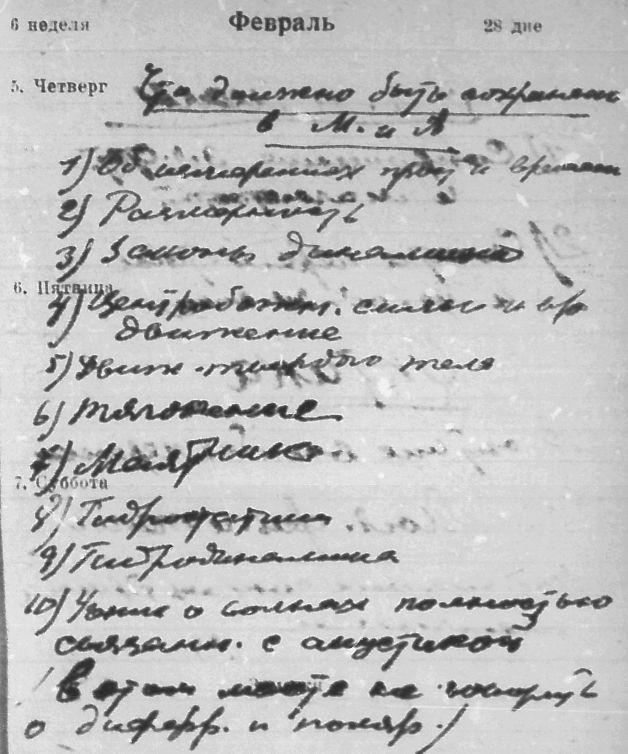 6 неделя Февраль 28 дне
5. Четверг Что должно быть сохранено
в М. и А
1) Об измерениях прост. и времени
2) Размерность
3) Законы динамики
6. Пятница
4) Центробежн. силы и вр
движение
5) Движ. твердого тела
6) Тяготение
7) Маятник
7. Суббота
8) Гидростатика
9) Гидродинамика
10) Учение о волнах полностью
связанн. с акустикой
(В этом месте не говорить
о дифр. и поляр.)